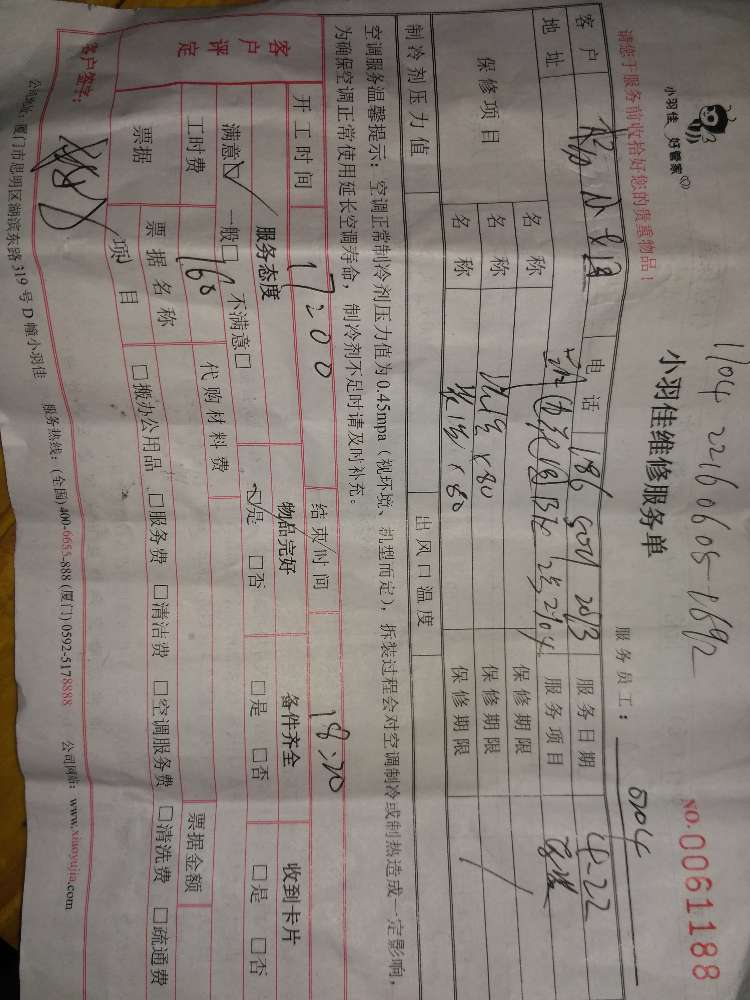 小羽佳 好管家
1704 22160605-1692
小羽佳维修服务单
NO.0061188
请您于服务前收拾好您的贵重物品！
服务员工： 0704
客户 电话 186 5011 2013 服务日期 4-22
地址 2号2104 服务项目
保修项目 名称 保修期限
名称 洗 1台×80 保修期限
名称 装 1台×80 保修期限 /
制冷剂压力值 出风口温度
空调服务温馨提示：空调正常制冷剂压力值为0.45mpa（视环境、机型而定），拆装过程会对空调制冷或制热造成一定影响，
为确保空调正常使用延长空调寿命，制冷剂不足时请及时补充。
客户评定 开工时间 17:00 结束时间 18:20
服务态度 物品完好 备件齐全 收到卡片
满意☑ 一般□ 不满意□ ☑是 □否 □是 □否 □是 □否
工时费 160 代购材料费
票据 票据名称 票据金额
项目 □搬办公用品 □服务费 □清洁费 □空调服务费 □清洗费 □疏通费
客户签字：
公司地址：厦门市思明区湖滨东路319号D幢小羽佳 服务热线：(全国)400-6655-888 (厦门)0592-5178888 公司网站：www.xiaoyujia.com